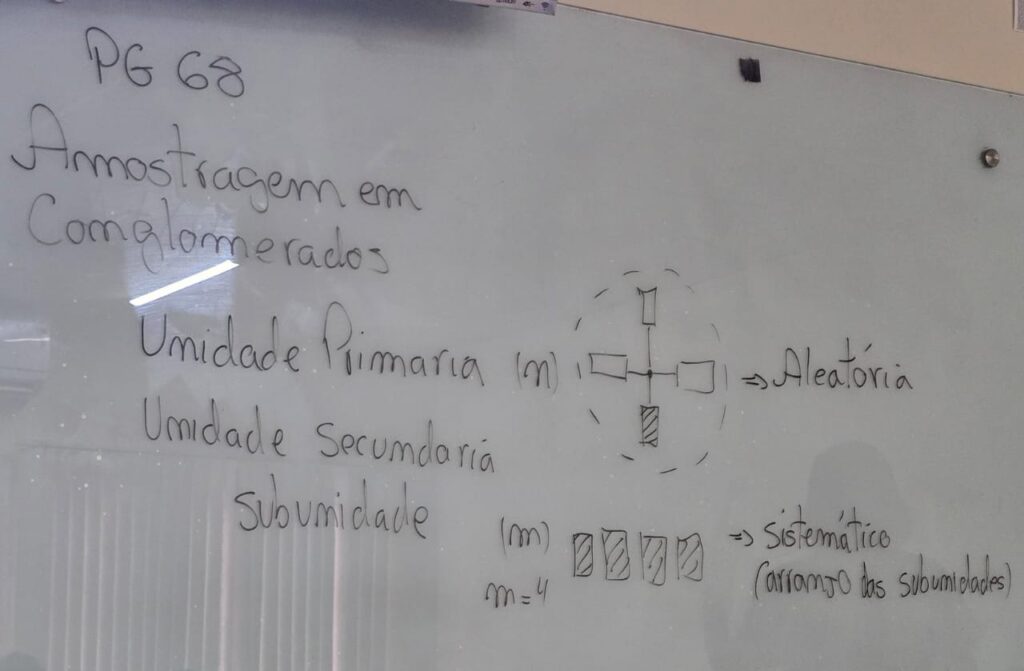 PG 68
Amostragem em
Conglomerados
Unidade Primaria (n) => Aleatória
Unidade Secundaria
subunidade
(m) => Sistemático
m=4 (arranjo das subunidades)